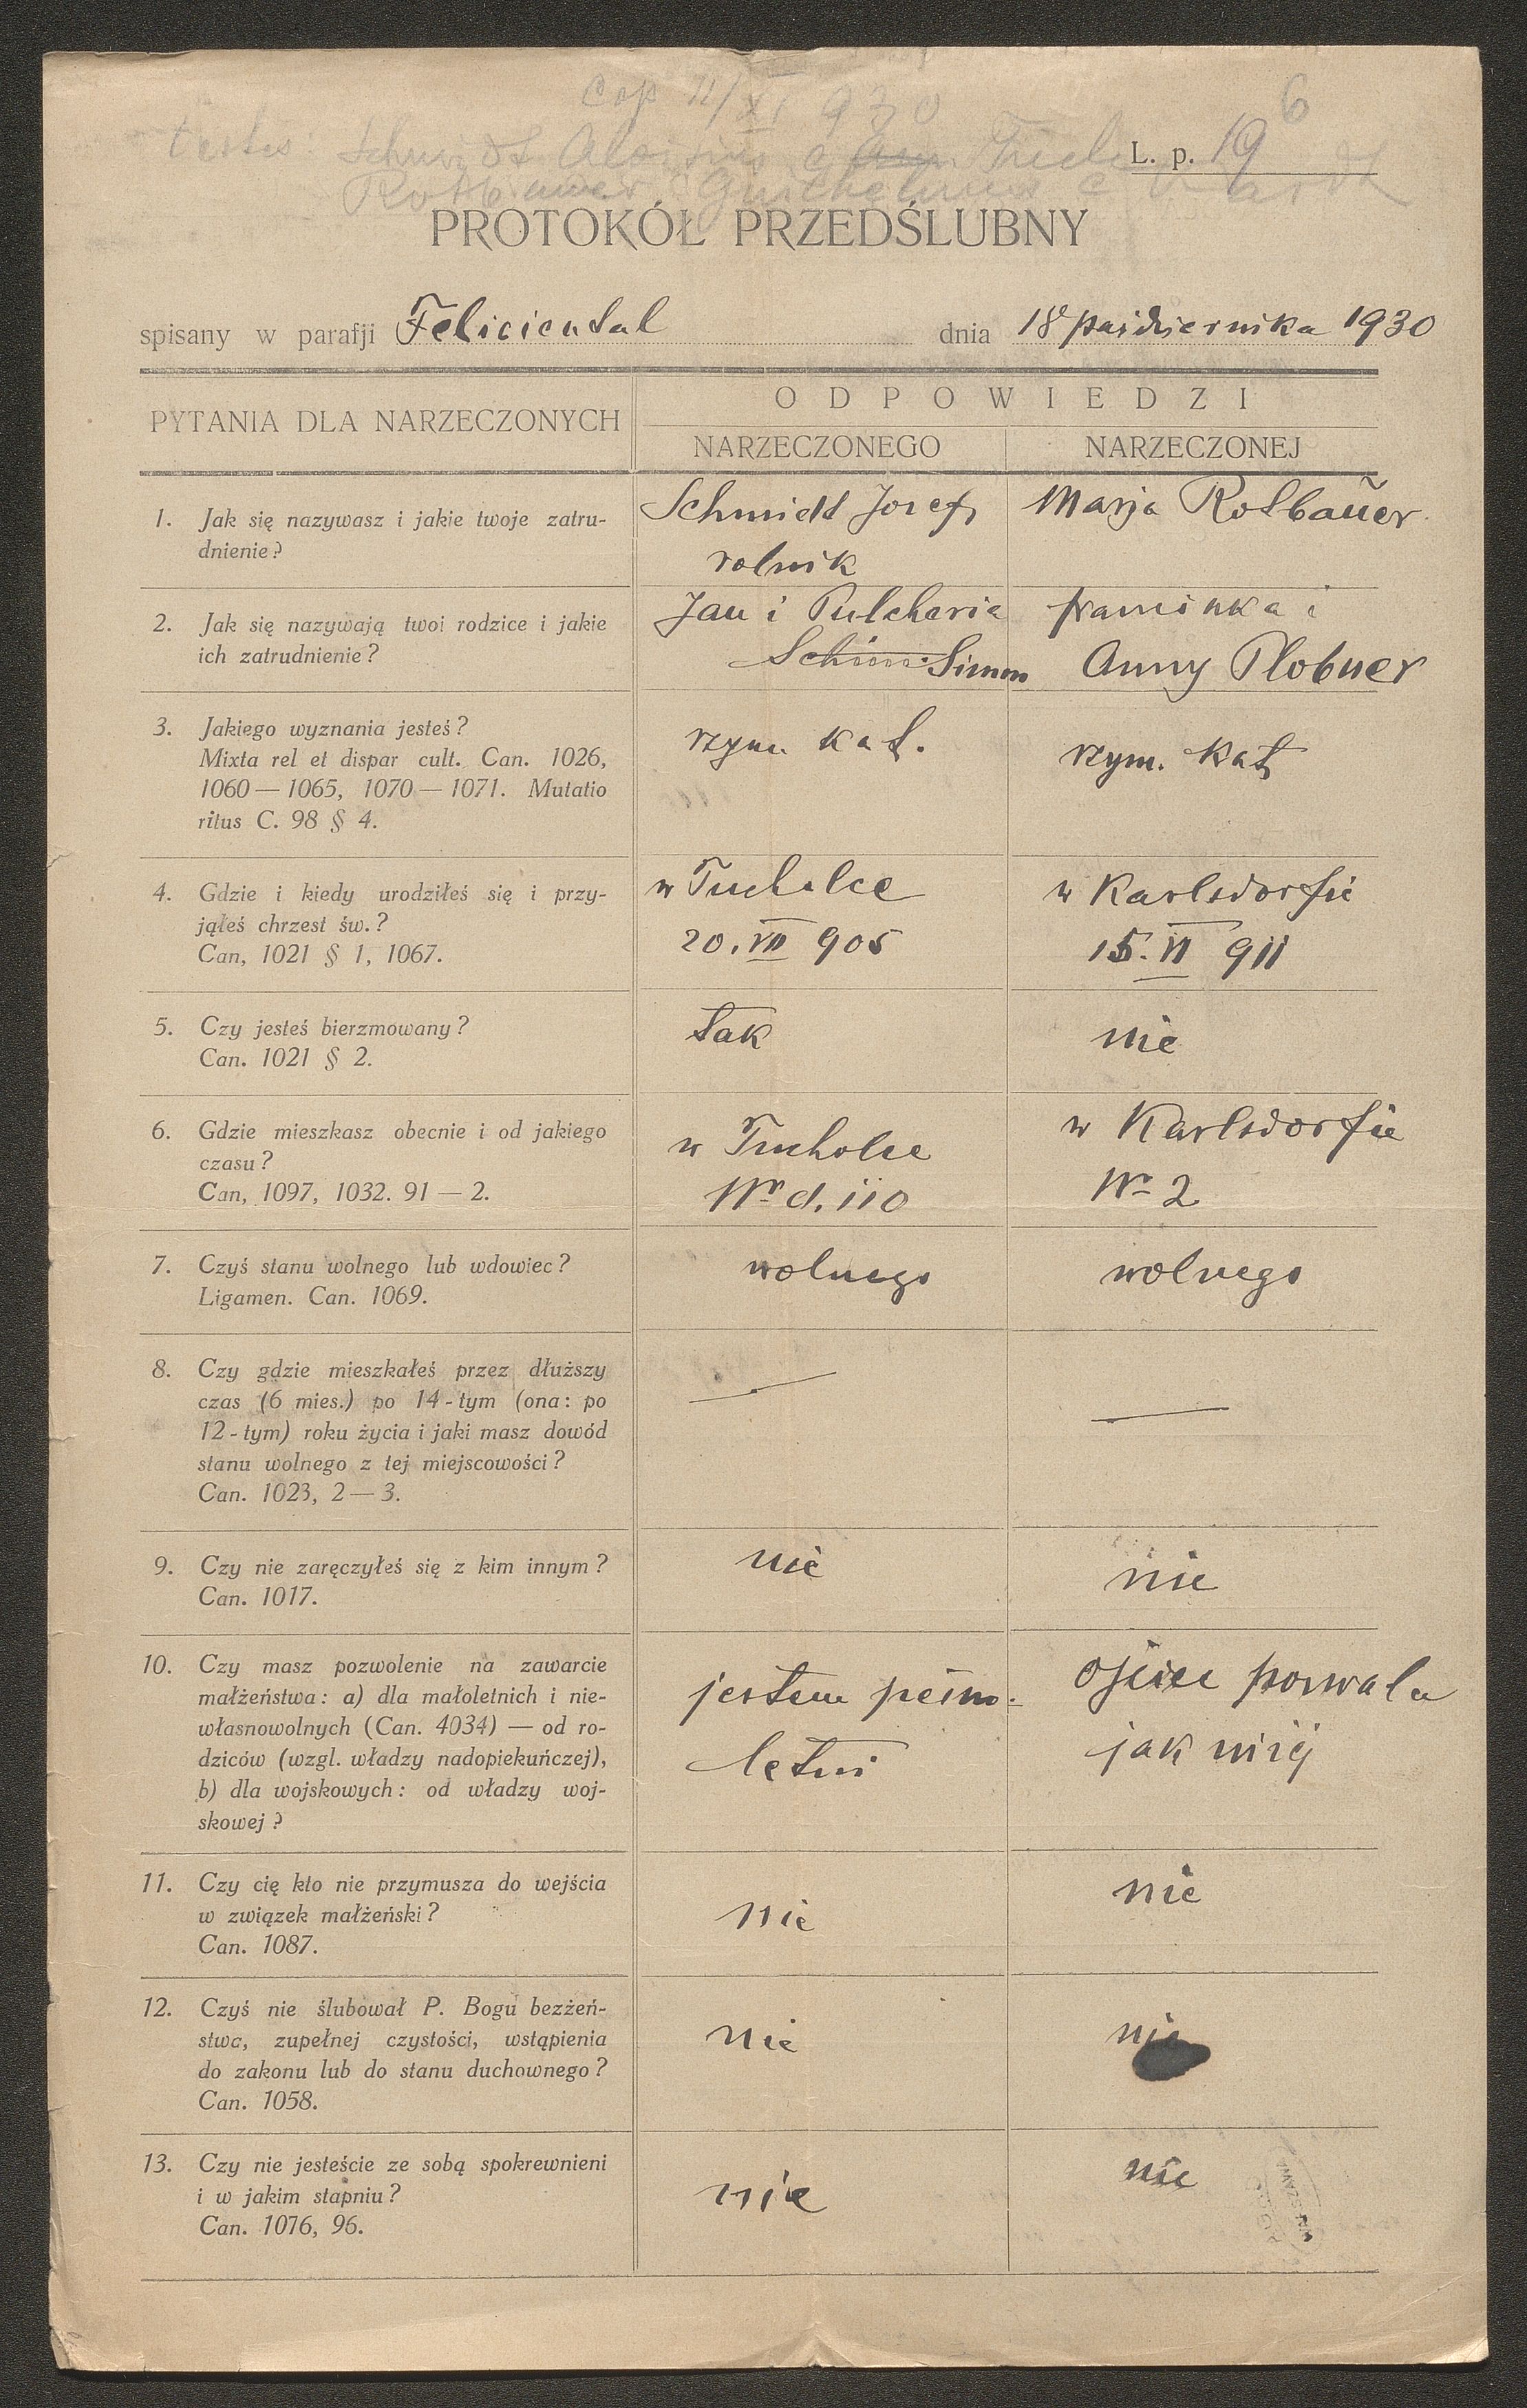 Cop 11/XI 930
L. p. 19 6
testes: Schmidt Aloisius e
Rotbauer Guilhelmus e
PROTOKÓŁ PRZEDŚLUBNY
spisany w parafji Felicientał dnia 18 października 1930
PYTANIA DLA NARZECZONYCH
ODPOWIEDZI
NARZECZONEGO NARZECZONEJ
1. Jak się nazywasz i jakie twoje zatru-
dnienie?
Schmidt Jozef,
rolnik
Marja Rotbauer
2. Jak się nazywają twoi rodzice i jakie
ich zatrudnienie?
Jan i Pulcheria
Schim. Simon
i
Anny Plobner
3. Jakiego wyznania jesteś?
Mixta rel et dispar cult. Can. 1026,
1060 — 1065, 1070 — 1071. Mutatio
ritus C. 98 § 4.
rzym. kat.
rzym. kat
4. Gdzie i kiedy urodziłeś się i przy-
jąłeś chrzest św.?
Can, 1021 § 1, 1067.
w Tucholce
20. VII 905
w Karlsdorfie
15. VI 911
5. Czy jesteś bierzmowany?
Can. 1021 § 2.
tak
nie
6. Gdzie mieszkasz obecnie i od jakiego
czasu?
Can, 1097, 1032. 91 — 2.
w Tucholce
Nr d. 110
w Karlsdorfie
Nr 2
7. Czyś stanu wolnego lub wdowiec?
Ligamen. Can. 1069.
wolnego
wolnego
8. Czy gdzie mieszkałeś przez dłuższy
czas (6 mies.) po 14-tym (ona: po
12-tym) roku życia i jaki masz dowód
stanu wolnego z tej miejscowości?
Can. 1023, 2 — 3.
—
—
9. Czy nie zaręczyłeś się z kim innym?
Can. 1017.
nie
nie
10. Czy masz pozwolenie na zawarcie
małżeństwa: a) dla małoletnich i nie-
własnowolnych (Can. 4034) — od ro-
dziców (wzgl. władzy nadopiekuńczej),
b) dla wojskowych: od władzy woj-
skowej?
jestem pełno-
letni
ojciec pozwala
jak niżej
11. Czy cię kto nie przymusza do wejścia
w związek małżeński?
Can. 1087.
nie
nie
12. Czyś nie ślubował P. Bogu bezżeń-
stwa, zupełnej czystości, wstąpienia
do zakonu lub do stanu duchownego?
Can. 1058.
nie
nie
13. Czy nie jesteście ze sobą spokrewnieni
i w jakim stapniu?
Can. 1076, 96.
nie
nie